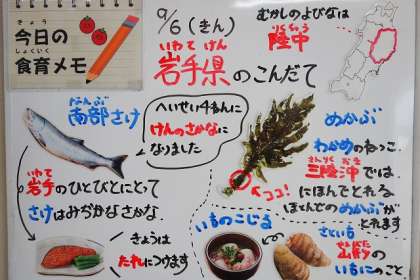 きょう
今日の
しょくいく
食育メモ
9/6(きん)
いわて けん
岩手県のこんだて
むかしのよびなは
りくちゅう
陸中
なんぶ
南部さけ
へいせい4ねんに
けんのさかなに
なりました
いわて
岩手のひとびとにとって
さけはみぢかなさかな。
きょうは
たれにつけます
めかぶ
わかめのねっこ。
さんりく おき
三陸沖では、
にほんでとれる
ほとんどのめかぶが
とれます
ココ!
いものこじる
さといも
のいものこのこと